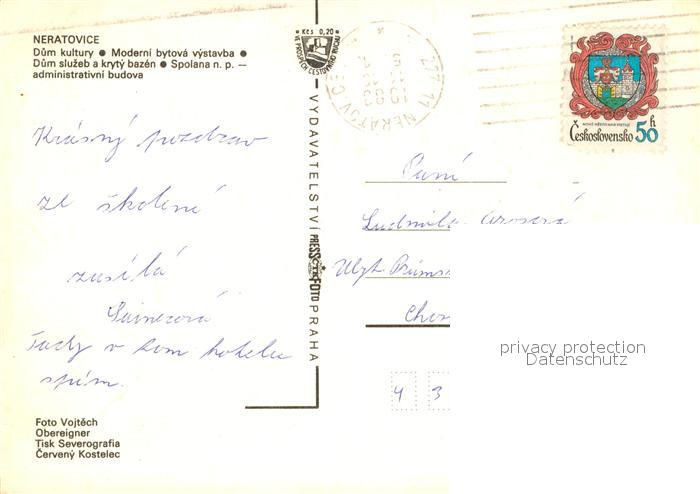 NERATOVICE
Dům kultury ● Moderní bytová výstavba ●
Dům služeb a krytý bazén ● Spolana n. p. —
administrativní budova
Krásný pozdrav
ze školení
zasílá
Tady v tom hotelu
spím.
Foto Vojtěch
Obereigner
Tisk Severografia
Červený Kostelec
Kčs 0,20
VE PROSPĚCH CESTOVNÍHO RUCHU
VYDAVATELSTVÍ PRESSFOTO PRAHA
ČTK
NERATOVICE
NOVÉ MĚSTO NAD METUJÍ
Československo 50 h
Paní
Ludmila
4 3
privacy protection
Datenschutz